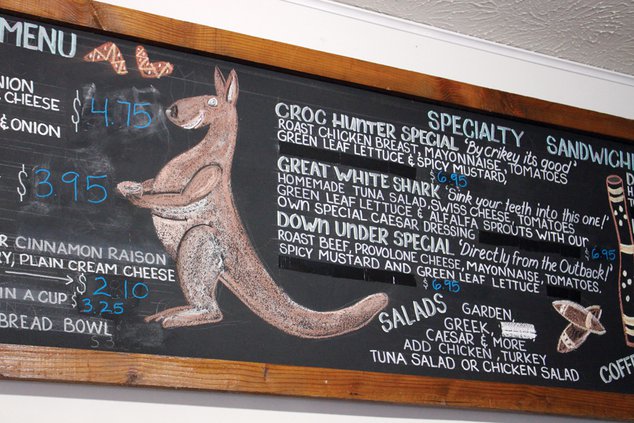 MENU
NION
CHEESE
$4.75
& ONION
$3.95
R CINNAMON RAISON
RY, PLAIN CREAM CHEESE
$2.10
IN A CUP $3.25
BREAD BOWL
SPECIALTY SANDWICH
CROC HUNTER SPECIAL "By Crikey its good"
ROAST CHICKEN BREAST, MAYONNAISE, TOMATOES
GREEN LEAF LETTUCE & SPICY MUSTARD,
$6.95
GREAT WHITE SHARK "Sink your teeth into this one!"
HOMEMADE TUNA SALAD, SWISS CHEESE, TOMATOES
GREEN LEAF LETTUCE & ALFALFA SPROUTS WITH OUR
OWN SPECIAL CAESAR DRESSING
$6.95
DOWN UNDER SPECIAL "Directly from the Outback!"
ROAST BEEF, PROVOLONE CHEESE, MAYONNAISE, TOMATOES.
SPICY MUSTARD AND GREEN LEAF LETTUCE
$6.95
SALADS
GARDEN,
GREEK,
CAESAR & MORE
ADD CHICKEN, TURKEY
TUNA SALAD OR CHICKEN SALAD
COFF